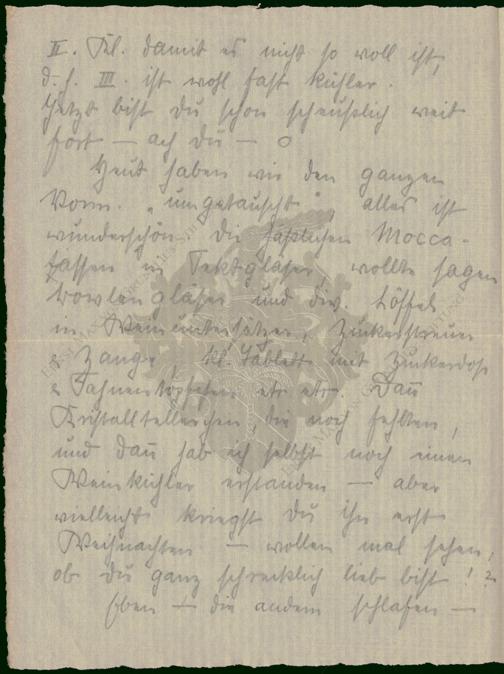 II. Kl. damit es nicht so voll ist,
d. h. III. ist wohl fast kühler.
Jetzt bist du schon scheußlich weit
fort — ach du — o
Heut haben wir den ganzen
Vorm. „umgetauscht", alles ist
wunderschön. Die häßlichen Mocca-
tassen in Sektgläser wollte sagen
Bowlengläser und div. Löffel
in Weinuntersätzer, Zuckerstreuer
& Zange, kl. Tablett mit Zuckerdose
& Sahnentöpfchen etc etc. Dañ
Kristalltellerchen, die noch fehlten,
und dañ hab ich selbst noch einen
Weinkühler erstanden — aber
vielleicht kriegst du ihn erst
Weihnachten — wollen mal sehen,
ob du ganz schrecklich lieb bist!
Eben — die andern schlafen —